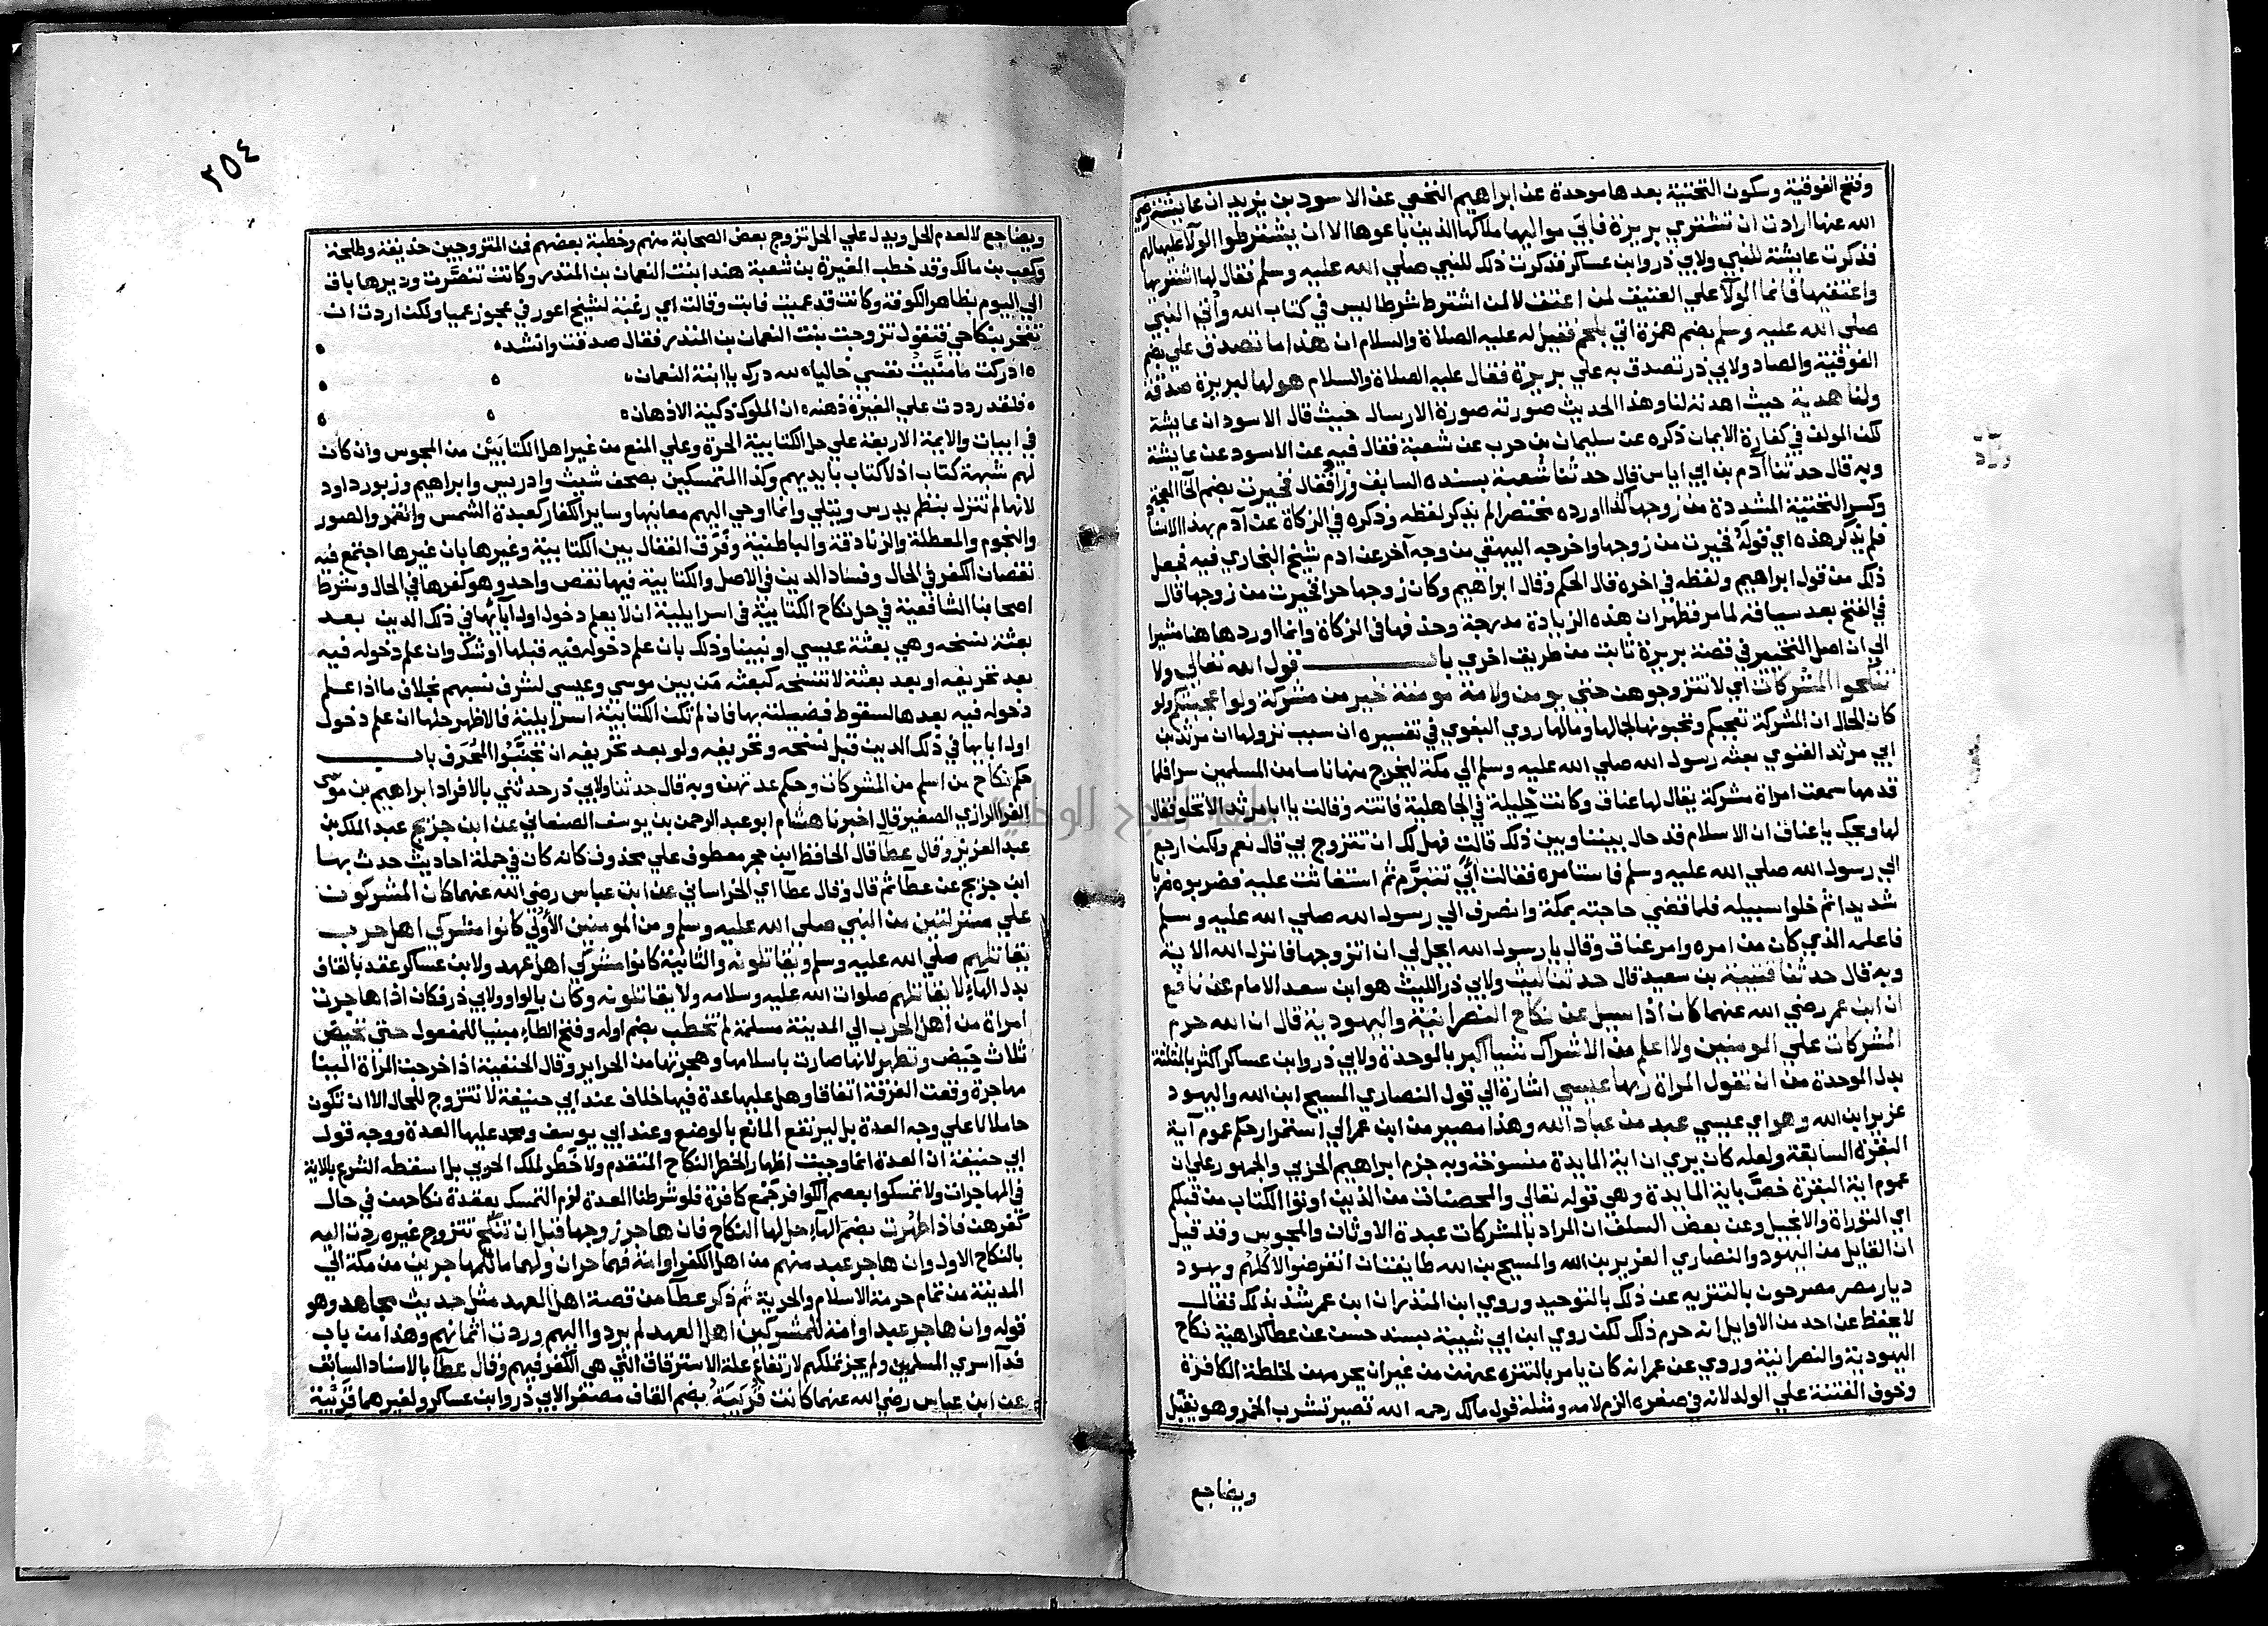 وفتح الفوقية وسكون التحتية بعدها موحدة عن ابراهيم النخعي عن الاسود بن يزيد ان عايشة رضي
الله عنها ارادت ان تشتري بريرة فابي مواليها ملاكها الذين باعوها الا ان يشترطوا الولا عليها لهم
فذكرت عايشة للنبي ولابي ذر وابن عساكر فذكرت ذلك للنبي صلي الله عليه وسلم فقال لها اشتريها
واعتقيها فانما الولآ علي العتيق لمن اعتق لا لمن اشترط شرطا ليس في كتاب الله وأتي النبي
صلي الله عليه وسلم بضم همزة اتي بلحم فقيل له عليه الصلاة والسلام ان هذا ما تصدق علي بضم
الفوقية والصاد ولابي ذر تصدق به علي بريرة فقال عليه الصلاة والسلام هو لها لبريرة صدقة
ولنا هدية حيث اهدته لنا وهذا الحديث صورته صورة الارسال حيث قال الاسود ان عايشة
لكن المولف في كفارة الايمان ذكره عن سليمان بن حرب عن شعبة فقال فيه عن الاسود عن عايشة
وبه قال حدثنا آدم بن ابي اياس قال حدثنا شعبة بسنده السابق وزاد فقال فخيرت بضم الخا المعجمة
وكسر التحتية المشددة من زوجها كذا اورده مختصرا لم يذكر لفظه وذكره في الزكاة عن آدم بهذا الاسناد
فلم يذكر هذه اي قوله فخيرت من زوجها واخرجه البيهقي من وجه آخر عن ادم شيخ البخاري فيه فجعل
ذلك من قول ابراهيم ولفظه في اخره قال الحكم وقال ابراهيم وكان زوجها حرا فخيرت من زوجها قال
في الفتح بعد سياقه لما مر فظهر ان هذه الزيادة مدرجة وحذفها في الزكاة وانما اوردها هنا مشيرا
الي ان اصل التخيير في قصة بريرة ثابت من طريق اخري باب قول الله تعالي ولا
تنكحوا المشركات اي لا تتزوجوهن حتي يومن ولامة مومنة خير من مشركة ولو اعجبتكم ولو
كان الحال ان المشركة تعجبكم وتحبونها لجمالها ومالها روي البغوي في تفسيره ان سبب نزولها ان مرثد بن
ابي مرثد الغنوي بعثه رسول الله صلي الله عليه وسلم الي مكة ليخرج منها ناسا من المسلمين سرا فلما
قدمها سمعت امراة مشركة يقال لها عناق وكانت خليلة في الجاهلية فاتته وقالت يا ابا مرثد الا تخلو فقال
لها ويحك يا عناق ان الاسلام قد حال بيننا وبين ذلك قالت فهل لك ان تتزوج بي قال نعم ولكن ارجع
الي رسول الله صلي الله عليه وسلم فاستامره فقالت أبي تتبرم ثم استغاثت عليه فضربوه ضربا
شديدا ثم خلوا سبيله فلما قضي حاجته بمكة وانصرف الي رسول الله صلي الله عليه وسلم
فاعلمه الذي كان من امره وامر عناق وقال يا رسول الله ايحل لي ان اتزوجها فانزل الله الاية
وبه قال حدثنا قتيبة بن سعيد قال حدثنا ليث ولابي ذر الليث هو ابن سعد الامام عن نافع
ان ابن عمر رضي الله عنهما كان اذا سيل عن نكاح النصرانية واليهودية قال ان الله حرم
المشركات علي المومنين ولا اعلم من الاشراك شيا اكبر بالموحدة ولابي ذر وابن عساكر اكثر بالمثلثة
بدل الموحدة من ان تقول المراة ربها عيسي اشارة الي قول النصاري المسيح ابن الله واليهود
عزير ابن الله وهو اي عيسي عبد من عباد الله وهذا مصير من ابن عمر الي استمرار حكم عموم آية
البقرة السابقة ولعله كان يري ان اية المايدة منسوخة وبه جزم ابراهيم الحربي والجمهور علي ان
عموم اية البقرة خص باية المايدة وهي قوله تعالي والمحصنات من الذين اوتوا الكتاب من قبلكم
اي التوراة والانجيل وعن بعض السلف ان المراد بالمشركات عبدة الاوثان والمجوس وقد قيل
ان القايل من اليهود والنصاري العزير بن الله والمسيح بن الله طايفتان انقرضوا الا كلهم ويهود
ديار مصر مصرحون بالتنزيه عن ذلك بالتوحيد وروي ابن المنذر ان ابن عمر شذ بذلك فقال
لا يحفظ عن احد من الاوايل انه حرم ذلك لكن روي ابن ابي شيبة بسند حسن عن عطا كراهية نكاح
اليهودية والنصرانية وروي عن عمر انه كان يامر بالتنزه عنهن من غير ان يحرمهن لخلطة الكافرة
وخوف الفتنة علي الولد لانه في صغره الزم لامه ومثله قول مالك رحمه الله تصير تشرب الخمر وهو يقبل
ويضاجع
٣٥٤
ويضاجع لا لعدم الحل ويدل علي الحل تزوج بعض الصحابة منهم وخطبة بعضهم فمن المتزوجين حذيفة وطلحة
وكعب بن مالك وقد خطب المغيرة بن شعبة هندا بنت النعمان بن المنذر وكانت تنصرت وديرها باق
الي اليوم بظاهر الكوفة وكانت قد عميت فابت وقالت اي رغبة لشيخ اعور في عجوز عميا ولكن اردت ان
تفخر بنكاحي فتقول تزوجت بنت النعمان بن المنذر فقال صدقت وانشد
ادركت ما منيت نفسي خاليا لله درك يا ابنة النعمان
فلقد رددت علي المغيرة ذهنه ان الملوك ذكية الاذهان
في ابيات والايمة الاربعة علي حل الكتابية الحرة وعلي المنع من غير اهل الكتابين من المجوس وان كان
لهم شبهة كتاب اذ لا كتاب بايديهم وكذا المتمسكين بصحف شيث وادريس وابراهيم وزبور داود
لانها لم تنزل بنظم يدرس ويتلي وانما اوحي اليهم معانيها وساير الكفار كعبدة الشمس والقمر والصور
والنجوم والمعطلة والزنادقة والباطنية وفرق القفال بين الكتابية وغيرها بان غيرها اجتمع فيه
نقصان الكفر في الحال وفساد الدين في الاصل والكتابية فيها نقص واحد وهو كفرها في الحال وشرط
اصحابنا الشافعية في حل نكاح الكتابية في اسرايلية ان لا يعلم دخول اول ابآئها في ذلك الدين بعد
بعثة تنسخه وهي بعثة عيسي او نبينا وذلك بان علم دخوله فيه قبلها او شك وان علم دخوله فيه
بعد تحريفه او بعد بعثة لا تنسخه كبعثة من بين موسي وعيسي لشرف نسبهم بخلاف ما اذا علم
دخوله فيه بعدها لسقوط فضيلته بها فان لم تكن الكتابية اسرايلية فالاظهر حلها ان علم دخول
اول ابايها في ذلك الدين قبل نسخه وتحريفه ولو بعد تحريفه ان تجنبوا المحرف باب
حكم نكاح من اسلم من المشركات وحكم عدتهن وبه قال حدثنا ولابي ذر حدثني بالافراد ابراهيم بن موسي
الفرا الرازي الصغير قال اخبرنا هشام ابو عبد الرحمن بن يوسف الصنعاني عن ابن جريج عبد الملك بن
عبد العزيز وقال عطآ قال الحافظ ابن حجر معطوف علي محذوف كانه كان في جملة احاديث حدث بها
ابن جريج عن عطآ ثم قال وقال عطآ اي الخراساني عن ابن عباس رضي الله عنهما كان المشركون
علي منزلتين من النبي صلي الله عليه وسلم ومن المومنين الأولي كانوا مشركي اهل حرب
يقاتلهم صلي الله عليه وسلم ويقاتلونه والثانية كانوا مشركي اهل عهد ولابن عساكر عقد بالقاف
بدل الهآء لا يقاتلهم صلوات الله عليه وسلامه ولا يقاتلونه وكان بالواو ولابي ذر فكان اذا هاجرت
امراة من اهل الحرب الي المدينة مسلمة لم تخطب بضم اوله وفتح الطآء مبنيا للمفعول حتي تحيض
ثلاث حيض وتطهر لانها صارت باسلامها وهجرتها من الحراير وقال الحنفية اذا خرجت المراة الينا
مهاجرة وقعت الفرقة اتفاقا وهل عليها عدة فيها خلاف عند ابي حنيفة لا تتزوج للحال الا ان تكون
حاملا لا علي وجه العدة بل ليرتفع المانع بالوضع وعند ابي يوسف ومحمد عليها العدة ووجه قول
ابي حنيفة ان العدة انما وجبت اظهارا لخطر النكاح المتقدم ولا خطر لملك الحربي بل اسقطه الشرع بالاية
في المهاجرات ولا تمسكوا بعصم الكوافر جمع كافرة فلو شرطنا العدة لزم التمسك بعقدة نكاحهن في حال
كفرهن فاذا طهرت بضم الهآء حل لها النكاح فان هاجر زوجها قبل ان تنكح تتزوج غيره ردت اليه
بالنكاح الاول وان هاجر عبد منهم من اهل الكفر او امة فهما حران ولهما ما للمهاجرين من مكة الي
المدينة من تمام حرمة الاسلام والحرية ثم ذكر عطآ من قصة اهل العهد مثل حديث مجاهد وهو
قوله وان هاجر عبد او امة للمشركين اهل العهد لم يردوا اليهم وردت اثمانهم وهذا من باب
فدآ اسري المسلمين ولم يجز تملكهم لارتفاع علة الاسترقاق التي هي الكفر فيهم وقال عطآ بالاسناد السابق
عن ابن عباس رضي الله عنهما كانت قريبة بضم القاف مصغرا لابي ذر وابن عساكر ولغيرهما قريبة